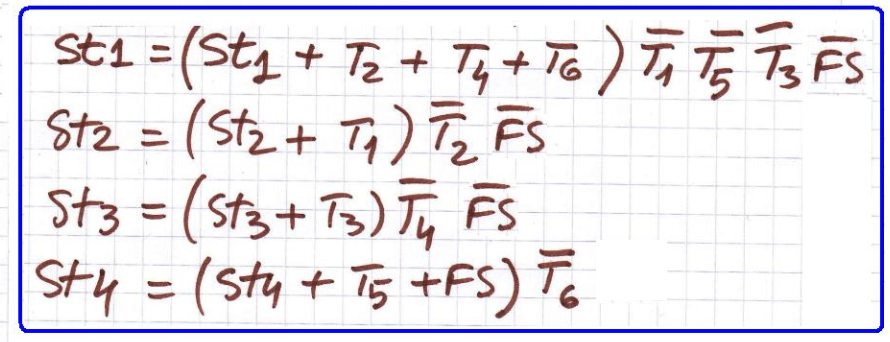 St1 = (St1 + T2 + T4 + T6) T̅1 T̅5 T̅3 F̅S̅
St2 = (St2 + T1) T̅2 F̅S̅
St3 = (St3 + T3) T̅4 F̅S̅
St4 = (St4 + T5 + FS) T̅6